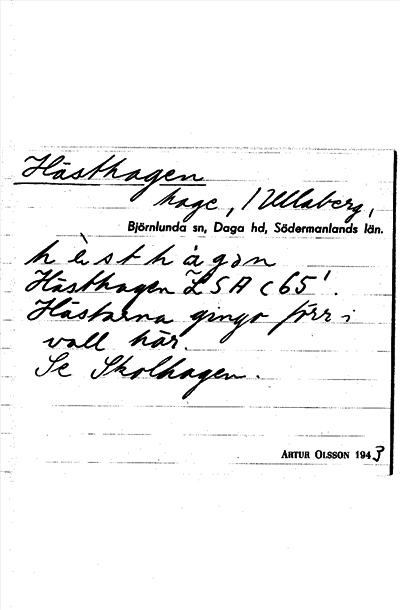 Hästhagen
hage, Ullaberg,
Björnlunda sn, Daga hd, Södermanlands län.
hèsthàgən
Hästhagen LSA C65'.
Hästarna gingo förr i
vall här.
Se Skolhagen.
ARTUR OLSSON 1943